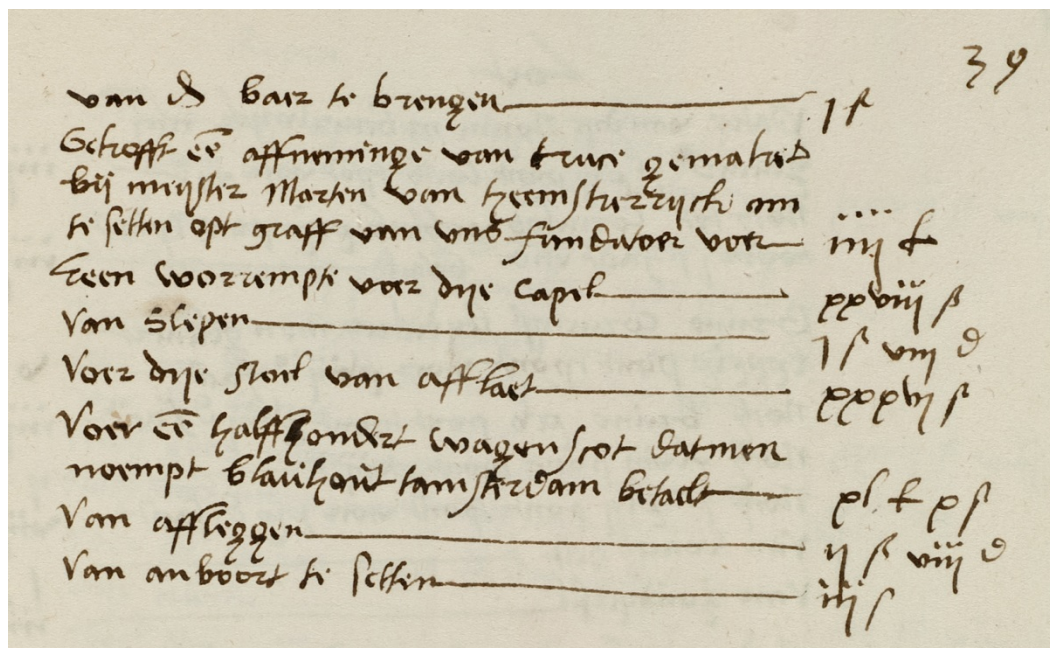 39
van d baer te brengen j s
Getrofft eē affneminge van truce gemalret
bij meijster Marten van heemstkerrijck om
te setten opt graff van uns fundatoer voer iiij £
Een worrempte voer dije capel xxviij s
Van slepen j s viij d
Voer dije stoel van afflaet xxxvj s
Voer eē halffhondert wagenscot datmen
noempt blauhout tamsterdam betaelt xl £ x s
Van affleggen ij s viij d
Van anboort te setten iij s